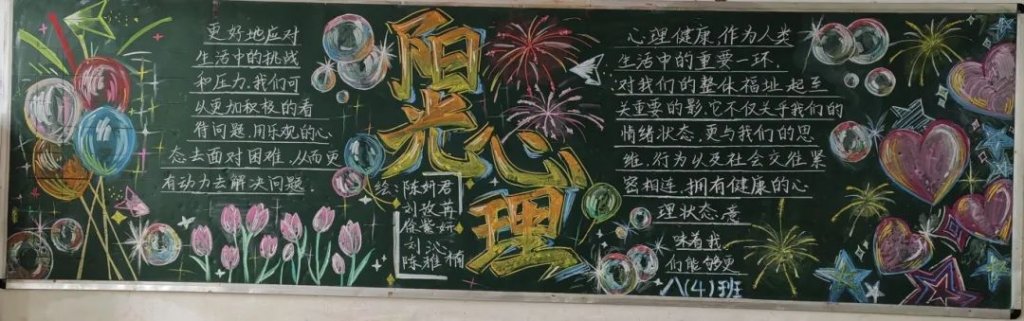 更好地应对
生活中的挑战
和压力.我们可
以更加积极的看
待问题.用乐观的心
态去面对困难.从而更
有动力去解决问题.
阳光心理
绘:陈妍君
刘
徐
刘沁
陈雅楠
心理健康.作为人类
生活中的重要一环.
对我们的整体福址起至
关重要的影它不仅关乎我们的
情绪状态.更与我们的思
维.行为以及社会交往紧
密相连.拥有健康的心
理状态.意
味着我
们能够更
八(4)班